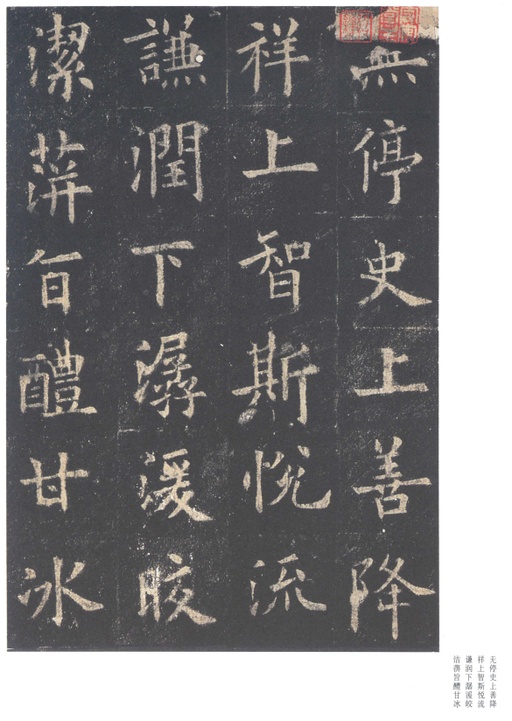 無停史上善降
祥上智斯悅流
謙潤下潺湲晈
潔蓱旨醴甘冰
无停史上善降
祥上智斯悦流
谦润下潺湲皎
洁蓱旨醴甘冰